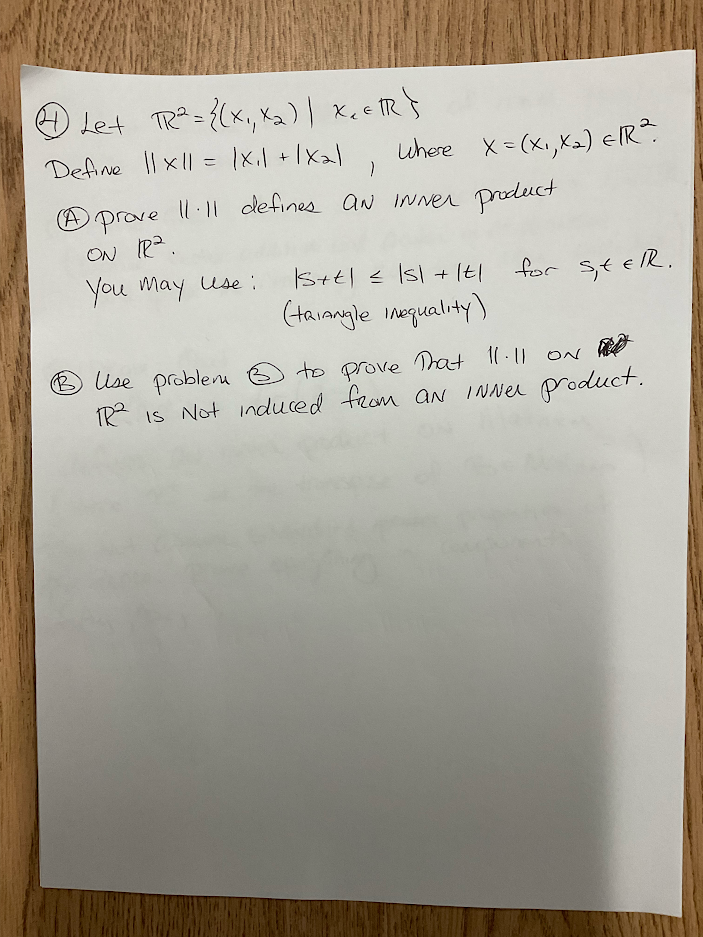 ④ Let ℝ² = {(x₁, x₂) | xᵢ ∈ ℝ}
Define ||x|| = |x₁| + |x₂|, where x = (x₁, x₂) ∈ ℝ².
Ⓐ prove ||·|| defines an inner product
on ℝ².
You may use: |s+t| ≤ |s| + |t| for s,t ∈ ℝ.
(triangle inequality)
Ⓑ Use problem ③ to prove that ||·|| on
ℝ² is not induced from an inner product.